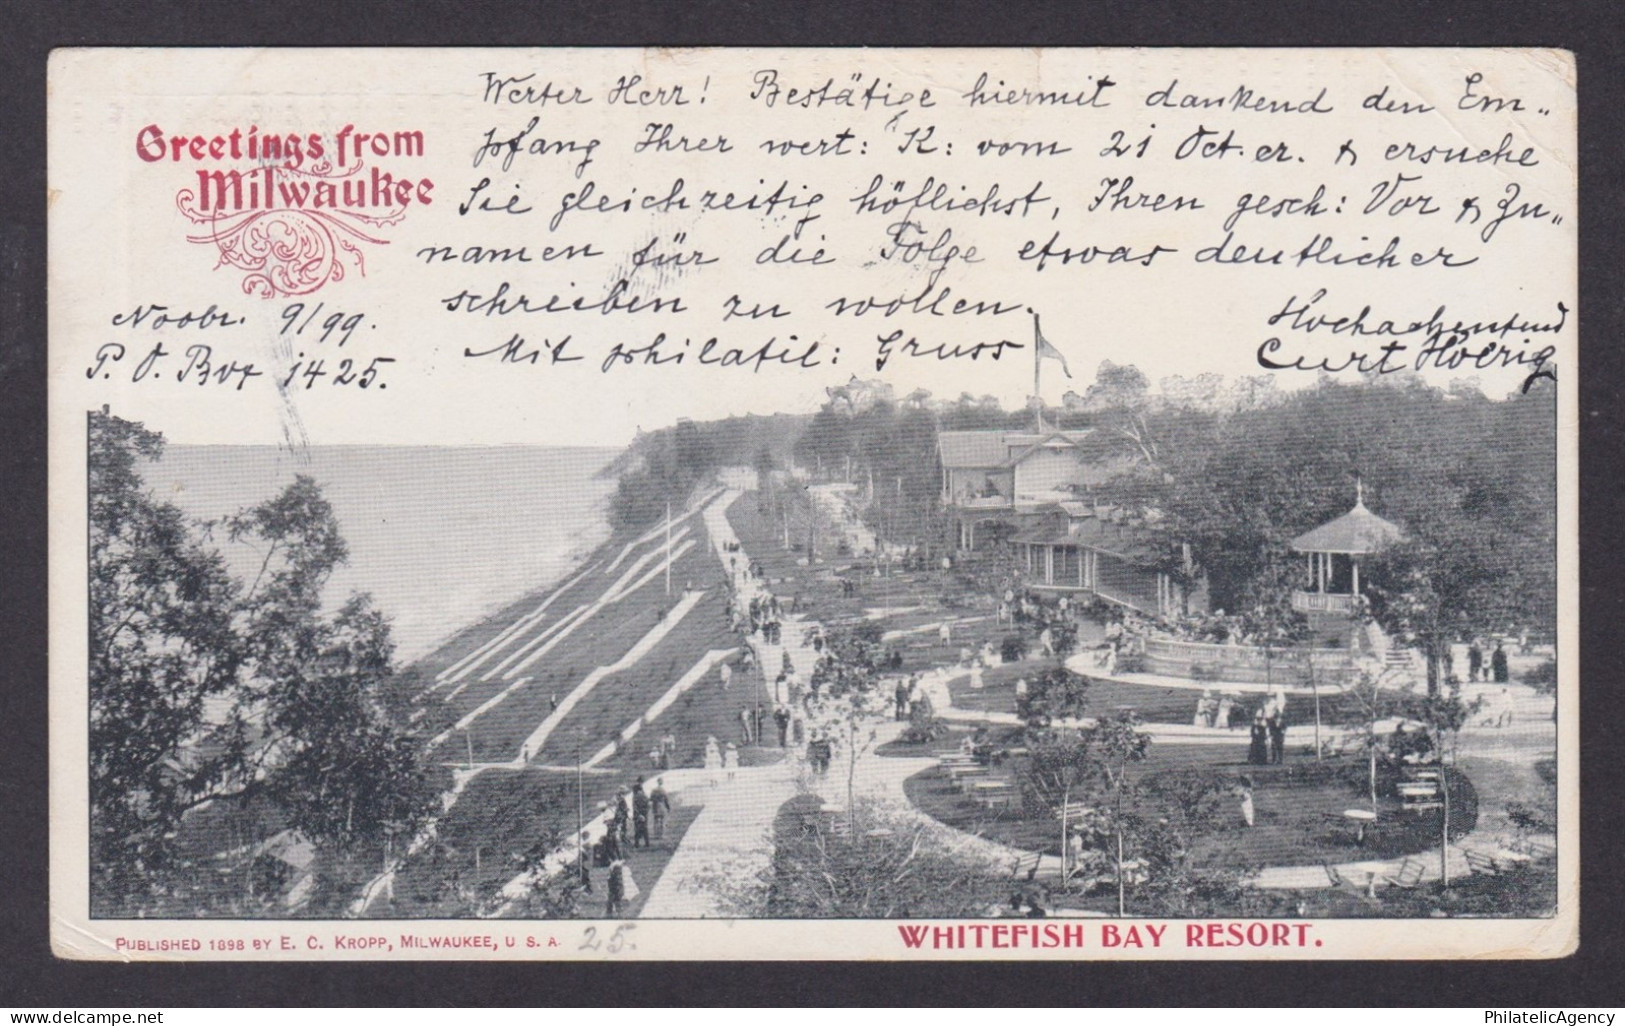 Greetings from
Milwaukee
Werter Herr! Bestätige hiermit dankend den Em„
pfang Ihrer wert: K: vom 21 Oct. er. & ersuche
Sie gleichzeitig höflichst, Ihren gesch: Vor & Zu„
namen für die Folge etwas deutlicher
schreiben zu wollen.
Mit philatel: Gruss
Hochachtend
Curt
Novbr. 9/99.
P. O. Box 1425.
PUBLISHED 1898 BY E. C. KROPP, MILWAUKEE, U S. A.
25.
WHITEFISH BAY RESORT.
PhilatelicAgency
delcampe.net